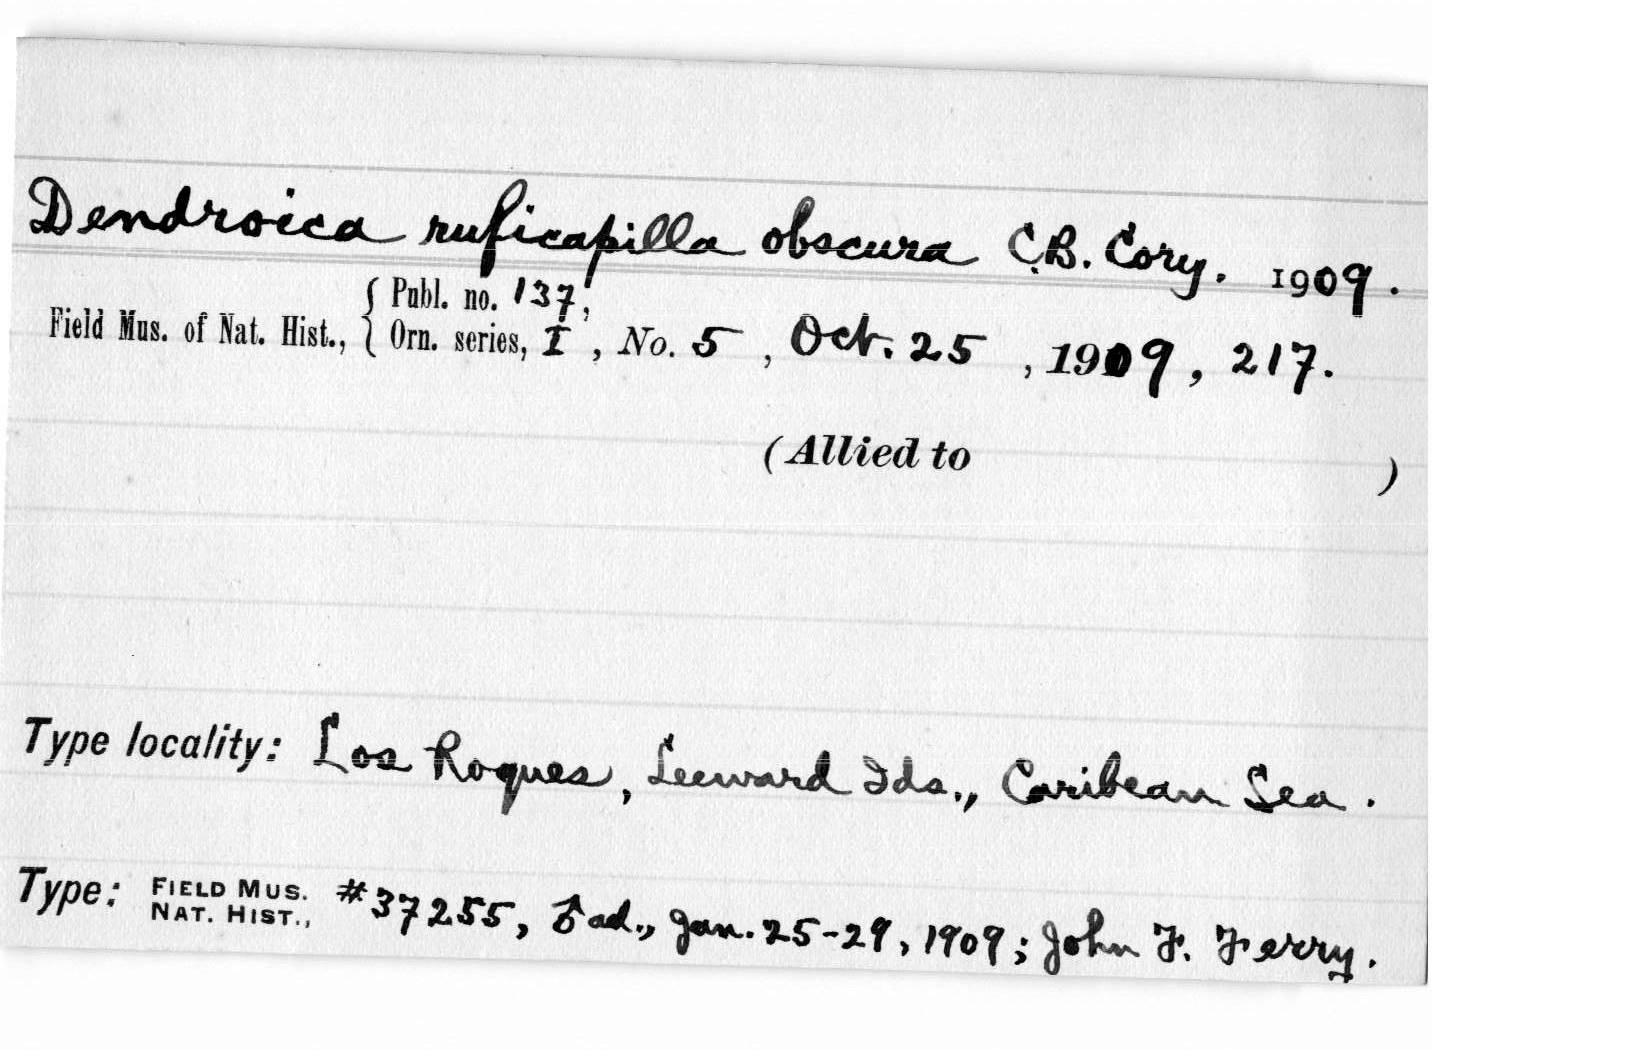 Dendroica ruficapilla obscura C.B. Cory. 1909.
Field Mus. of Nat. Hist., { Publ. no. 137,
Orn. series, I, No. 5, Oct. 25, 1909, 217.
(Allied to )
Type locality: Los Roques, Leeward Ids., Caribean Sea.
Type: FIELD MUS. NAT. HIST., #37255, ♂ ad., Jan. 25-29, 1909; John F. Ferry.